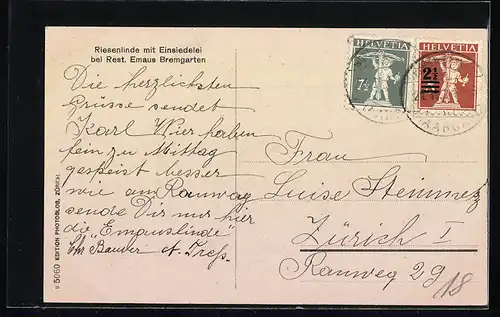 Riesenlinde mit Einsiedelei
bei Rest. Emaus Bremgarten
Die herzlichsten
Grüsse sendet
Karl Wir haben
fein zu Mittag
gespeist besser
wie am Ranweg
sende Dir nur hier
die "Emauslinde"
Bauder
U 5060 EDITION PHOTOGLOB, ZÜRICH
HELVETIA
7½
HELVETIA
2½
Frau
Luise Steinmetz
Zürich I
Ranweg 29
18